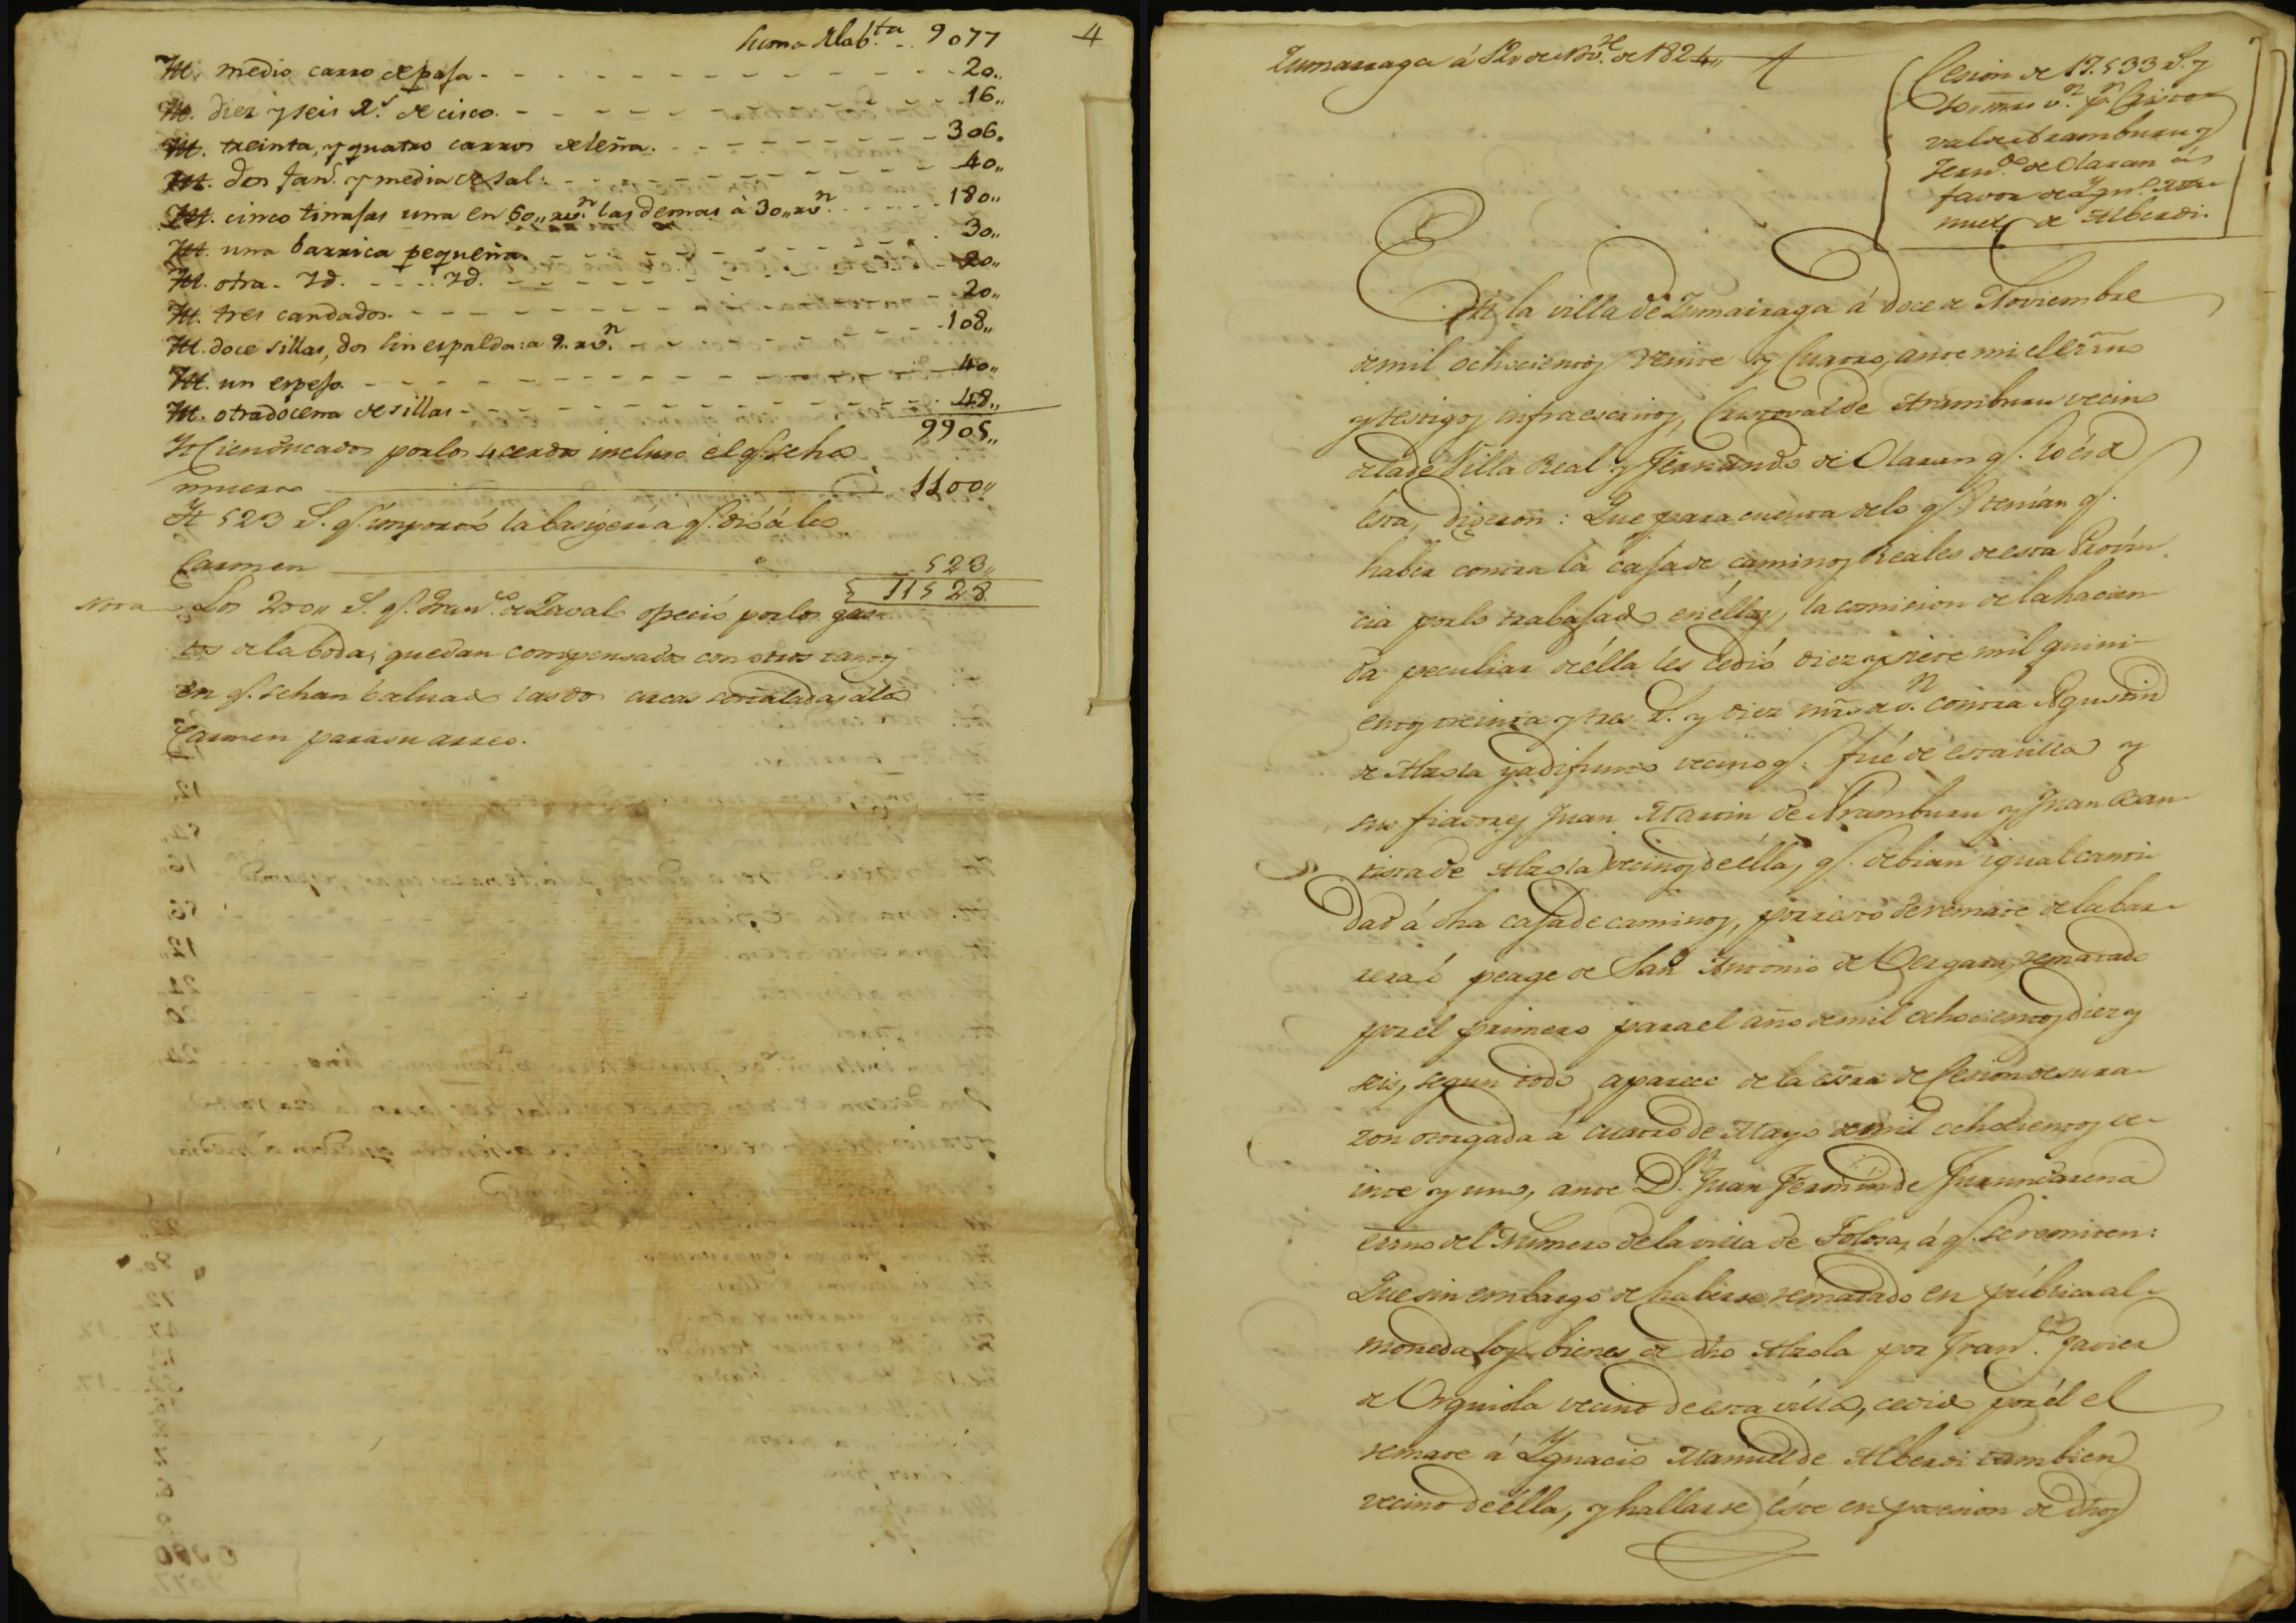 Suma de la b.ta 9077
4
It. medio carro de paja 20,,
It. diez y seis r.s de cisco 16,,
It. treinta, y quatro carros de leña. 306,,
It. dos fan.s y media de sal: 40,,
It. cinco tinajas una en 60,, rv.n las demas à 30,, rv.n 180,,
It. una barrica pequeña. 30,,
It. otra. Yd. Yd. 20,,
It. tres candados. 20,,
It. doce sillas, dos sin espalda: a 9,, rv.n 108,,
It. un espejo. 40,,
It. otra docena de sillas 48,,
9905,,
It Cien ducados por los 4 cerdos incluso el q.e se ha
muerto 1100,,
It 523 r.s q.e importó la basigería q.e dió á la
Carmen 523,,
11528
Nota Los 200,, r.s q.e Fran.co de Zaval ofreció por los gas-
tos de la boda, quedan compensados con otros tantos
en q.e se han baluado las dos arcas señaladas á la
Carmen para su arreo.
Zumarraga á 12,, de Nov.e de 1824,,
Cesion de 17.533 r.s y
10,, mrs v.n p.r Cristo-
val de Aramburu y
Fern.do de Olaran á
favor de Ygn.o Ma-
nuel de Alberdi.
En la villa de Zumarraga á doce de Noviembre
de mil ochocientos veinte y cuatro, ante mi el esno
y testigos infraescritos, Cristoval de Aramburu vecino
de la de Villa Real y Fernando de Olaran q.e lo és de
esta, digeron: Que para cuenta de lo q.e tenían q.e
haber contra la casa de caminos Reales de esta Provin-
cia por lo trabajado en éllos, la comision de la hacien-
da peculiar de élla les cedió diez y siete mil quini-
entos treinta y tres r.s y diez mrs v.n contra Agustin
de Alzola ya difunto vecino q.e fué de esta villa y
sus fiadores Juan Martin de Aramburu y Juan Bau-
tista de Alzola vecinos de élla, q.e debian igual canti-
dad á dha casa de caminos, por resto de remate de la bar-
rera ó peage de San Antonio de Vergara, rematado
por el primero para el año de mil ochocientos diez y
seis, segun todo aparece de la esra de Cesion de su ra-
zon otorgada á cuatro de Mayo de mil ochocientos ve-
inte y uno, ante D.n Juan Fermin de Furundarena
esno del Número de la villa de Tolosa, á q.e se remiten:
Que sin embargo de haberse rematado en pública al-
moneda los bienes de dho Alzola por Fran.co Javier
de Urquiola vecino de esta villa, cedido por él el
remate á Ygnacio Manuel de Alberdi tambien
vecino de élla, y hallarse éste en posesion de dhos